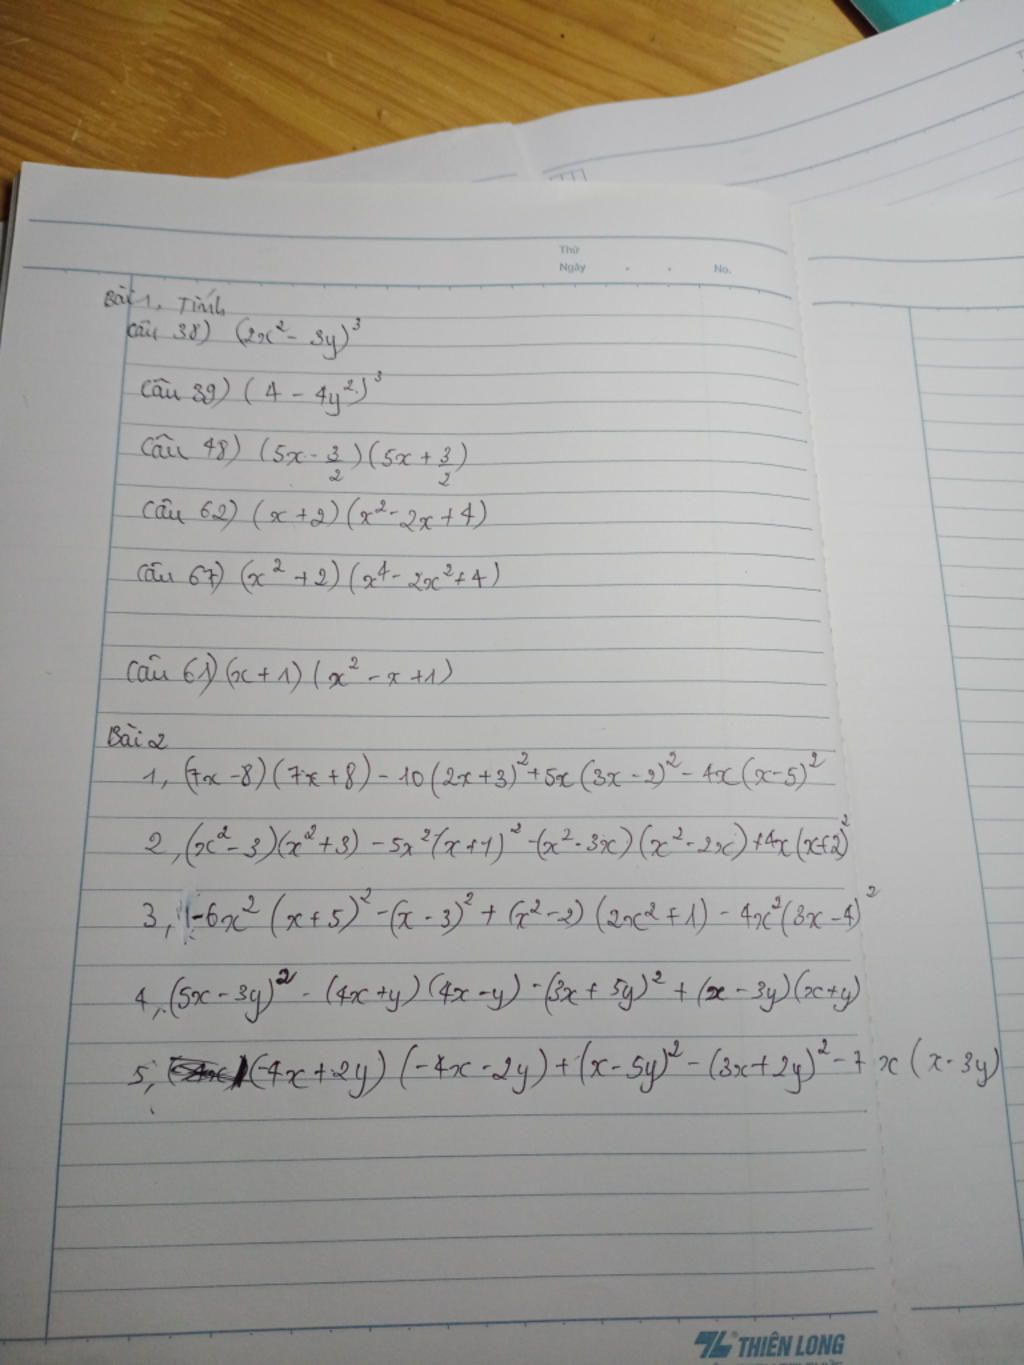 Thứ
Ngày . . No.
Bài 1, Tính
Câu 38) (2x² - 3y)³
Câu 39) (4 - 4y²)³
Câu 48) (5x - 3/2)(5x + 3/2)
Câu 62) (x+2)(x² - 2x + 4)
Câu 67) (x² + 2)(x⁴ - 2x² + 4)
Câu 61) (x + 1)(x² - x + 1)
Bài 2
1, (7x - 8)(7x + 8) - 10(2x + 3)² + 5x(3x - 2)² - 4x(x - 5)²
2, (x² - 3)(x² + 3) - 5x²(x + 1)² - (x² - 3x)(x² - 2x) + 4x(x + 2)²
3, -6x²(x + 5)² - (x - 3)² + (x² - 2)(2x² + 1) - 4x²(3x - 4)²
4, (5x - 3y)² - (4x + y)(4x - y) - (3x + 5y)² + (x - 3y)(x + y)
5, (-4x + 2y)(-4x - 2y) + (x - 5y)² - (3x + 2y)² - 7x(x - 3y)
THIÊN LONG